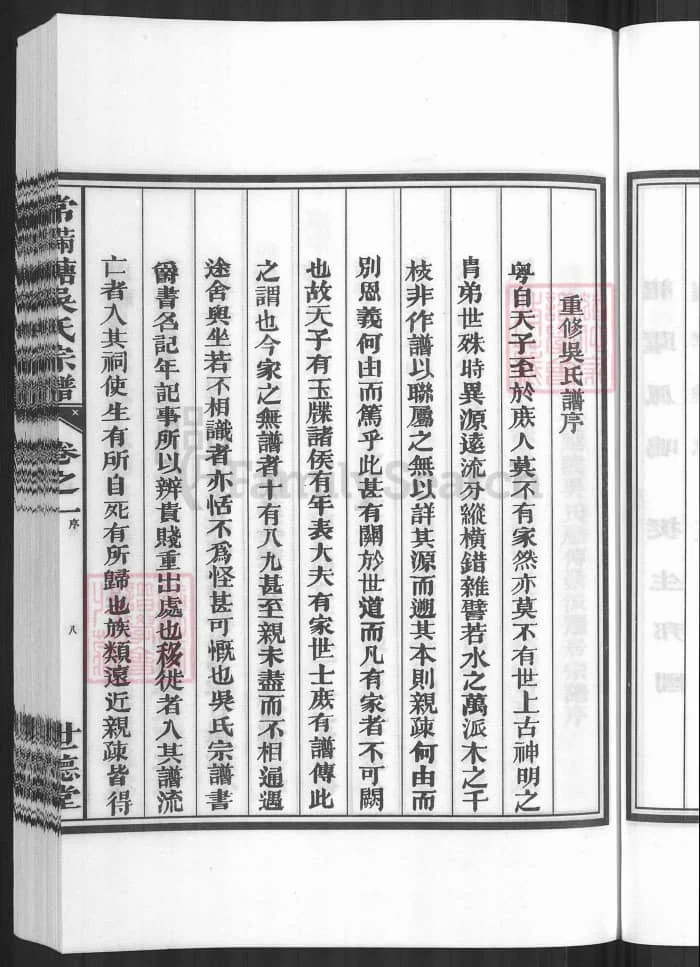 重修吳氏譜序
粤自天子至於庶人莫不有家然亦莫不有世上古神明之
胄弟世殊時異源遠流分縱橫錯雜譬若水之萬派木之千
枝非作譜以聯屬之無以詳其源而遡其本則親疎何由而
別恩義何由而篤乎此甚有關於世道而凡有家者不可闕
也故天子有玉牒諸侯有年表大夫有家世士庶有譜傳此
之謂也今家之無譜者十有八九甚至親未盡而不相通遇
途舍與坐若不相識者亦恬不爲怪甚可慨也吳氏宗譜書
爵書名記年記事所以辨貴賤重出處也移徙者入其譜流
亡者入其祠使生有所自死有所歸也族類遠近親疎皆得
常 塘吳氏宗譜
卷之一
序
八
世德堂
FamilySearch